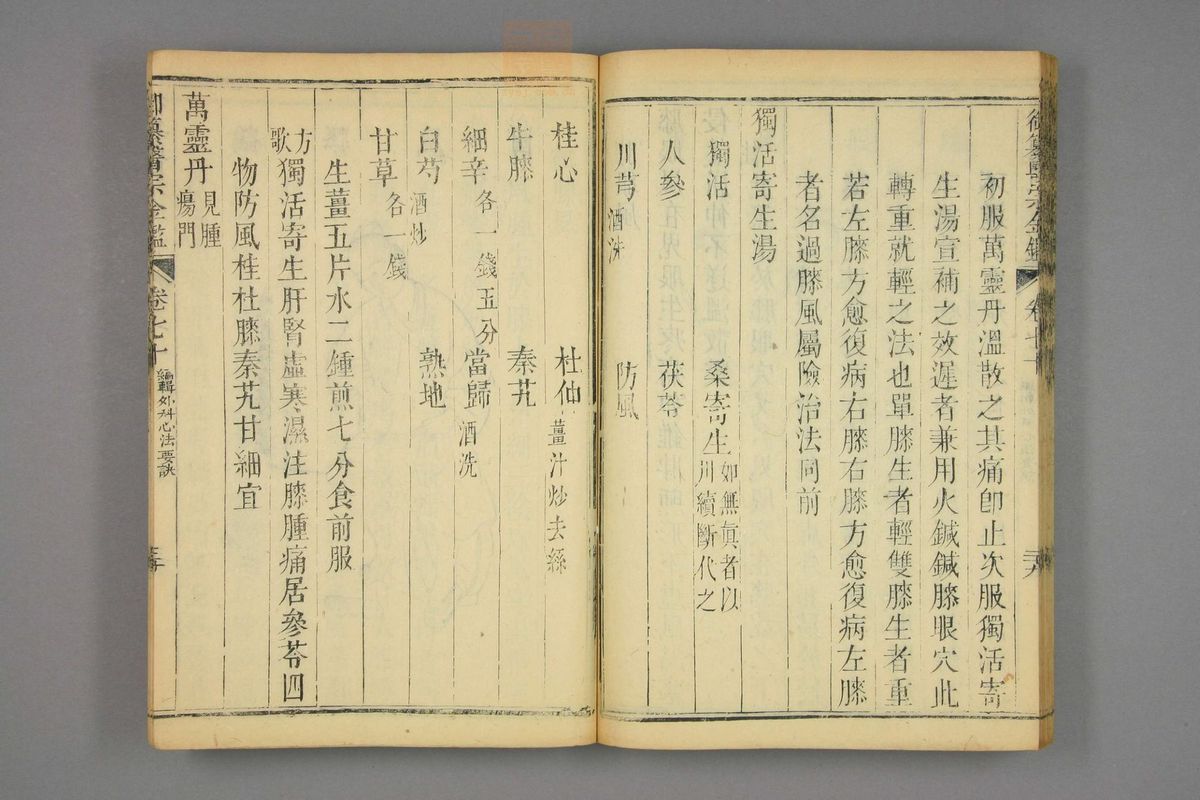 初服萬靈丹溫散之其痛卽止次服獨活寄
生湯宣補之效遲者兼用火鍼鍼膝眼穴此
轉重就輕之法也單膝生者輕雙膝生者重
若左膝方愈復病右膝右膝方愈復病左膝
者名過膝風屬險治法同前
獨活寄生湯
獨活 桑寄生 如無眞者以川續斷代之
人參 茯苓
川芎 酒洗 防風
桂心 杜仲 薑汁炒去絲
牛膝 秦艽
細辛 各一錢五分 當歸 酒洗
白芍 酒炒 熟地
甘草 各一錢
生薑五片水二鍾煎七分食前服
方歌 獨活寄生肝腎虛寒濕注膝腫痛居參苓四
物防風桂杜膝秦艽甘細宜
萬靈丹 見腫瘍門
御纂醫宗金鑑 卷七十 編輯外科心法要訣